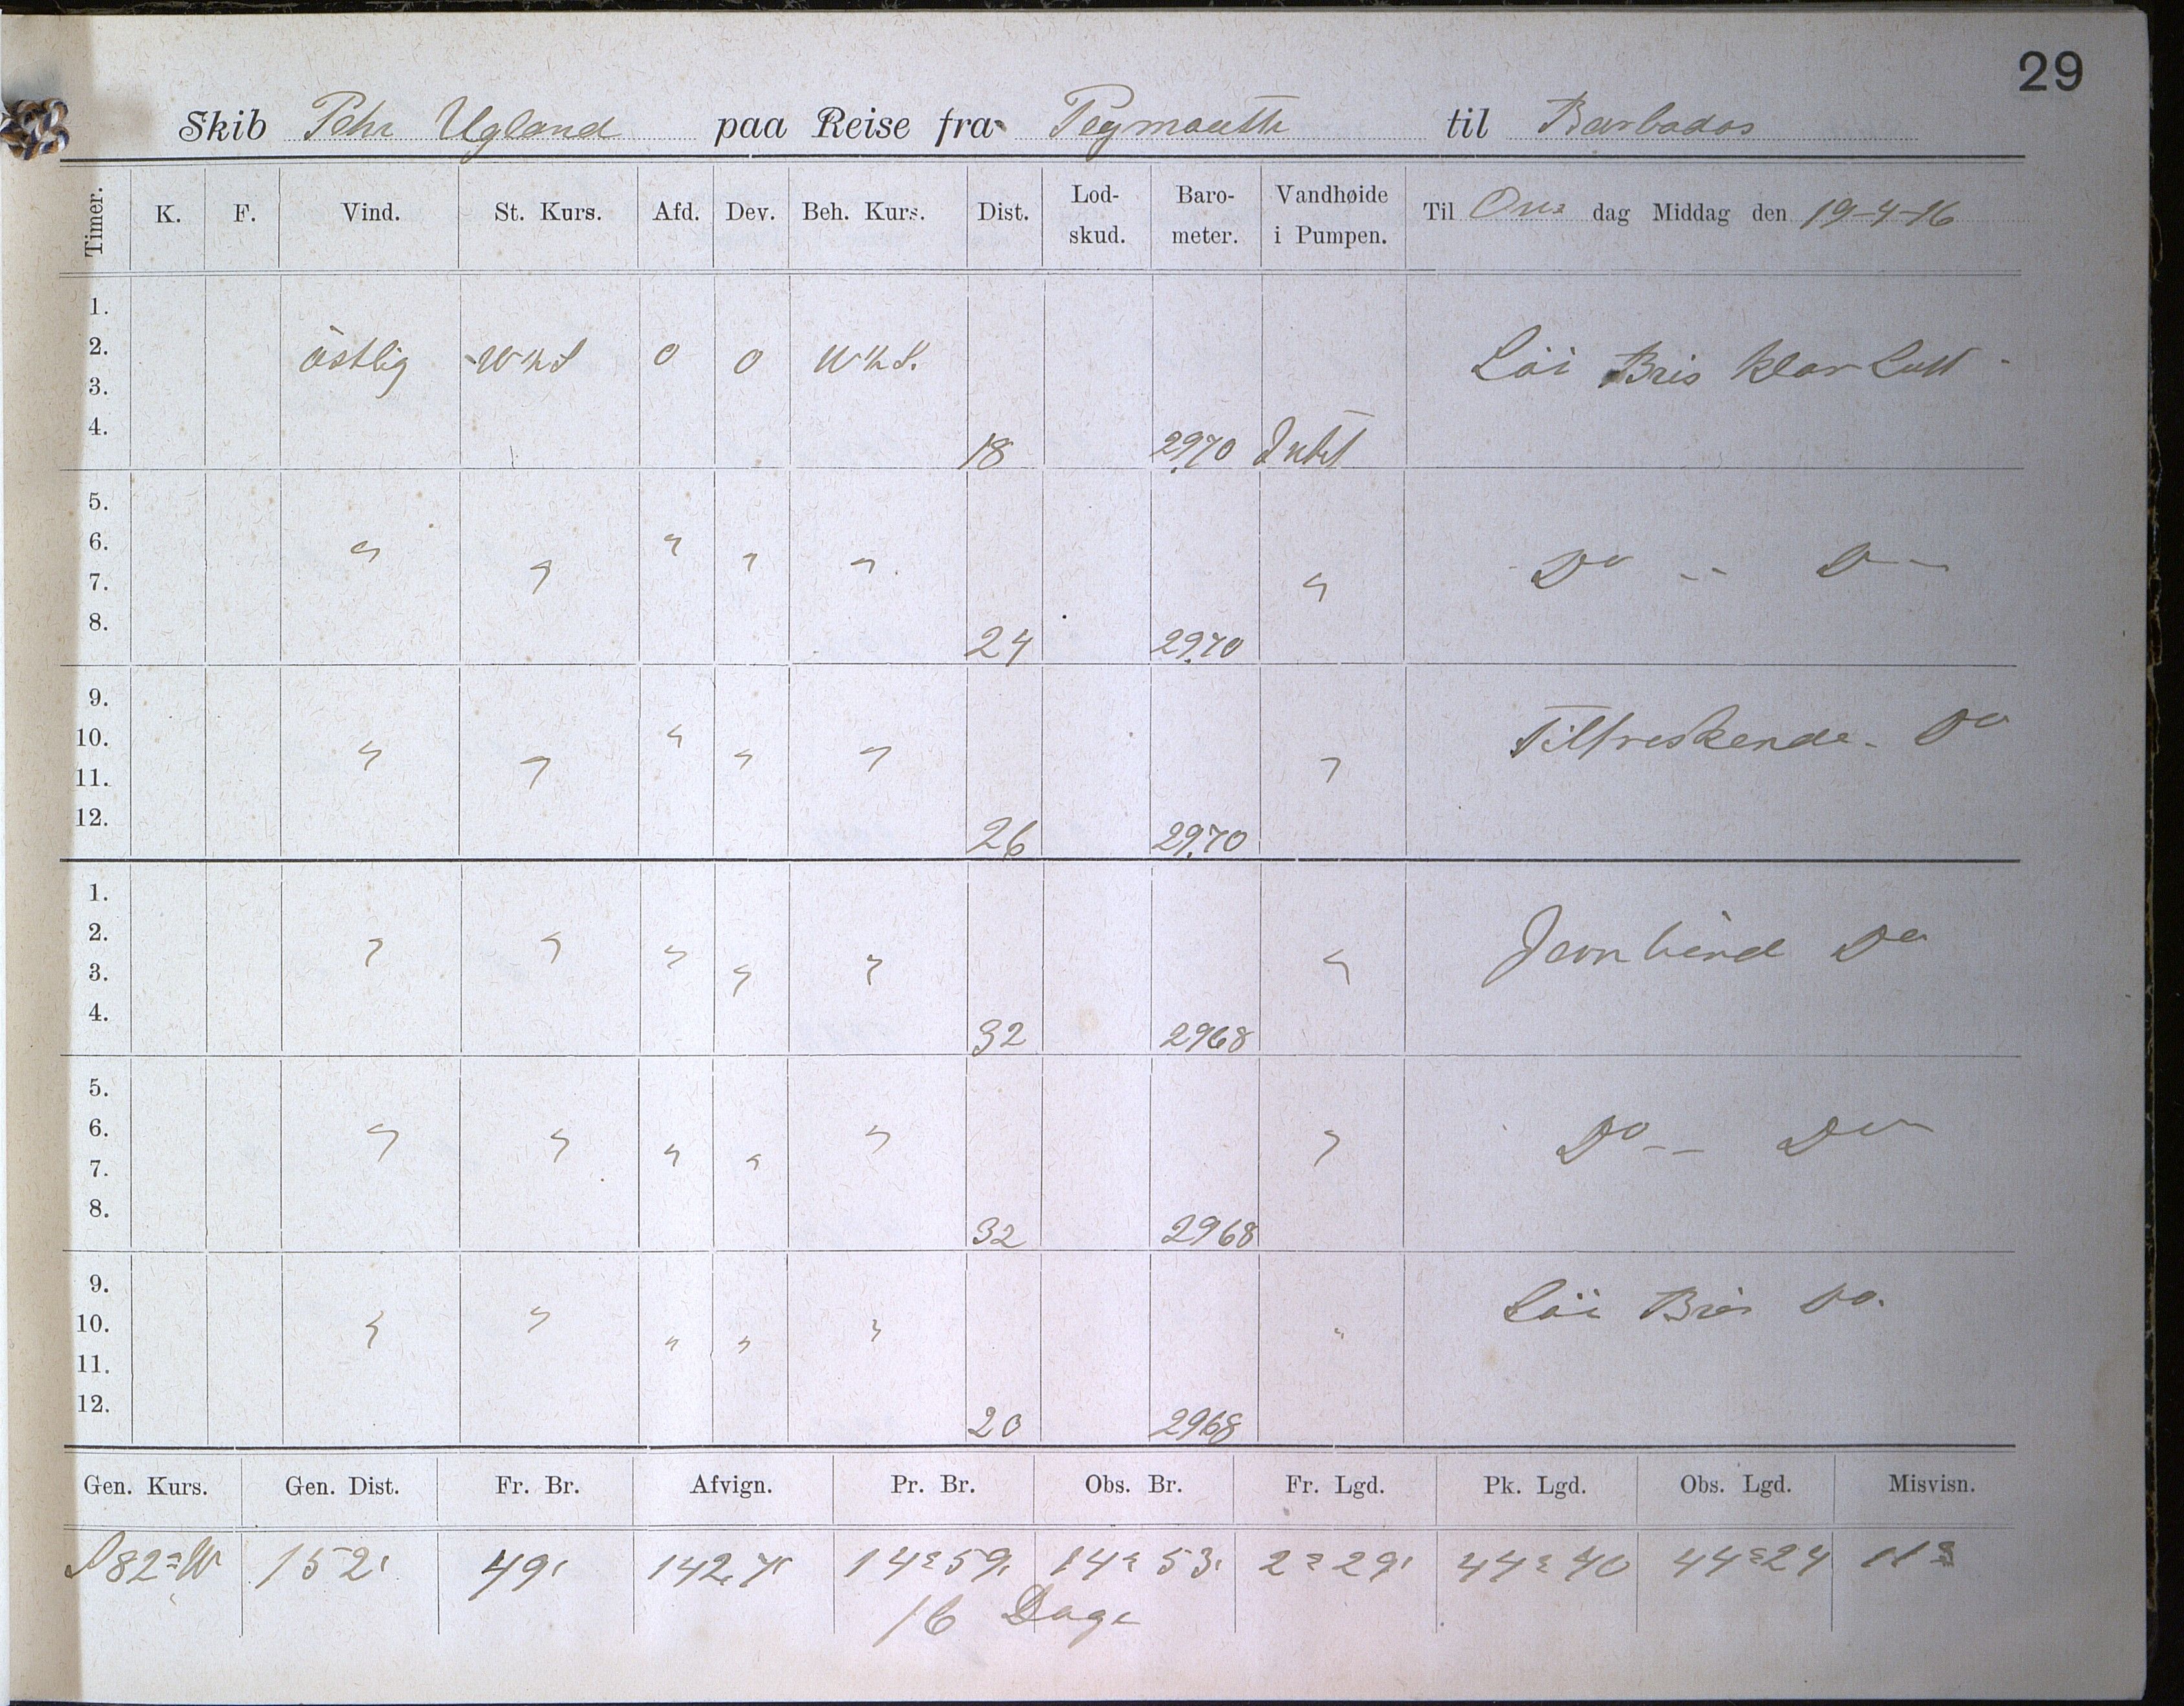 29
Skib Pehr Ugland paa Reise fra Plymouth til Barbados
Timer. K. F. Vind. St. Kurs. Afd. Dev. Beh. Kurs. Dist. Lod-skud. Baro-meter. Vandhøide i Pumpen. Til Ons dag Middag den 19-4-16
1.
2. östlig W½S 0 0 W½S. Löi Bris klar Luft
3.
4. 18 29.70 Intet
5.
6. " " " " " " Do -- D--
7.
8. 24 29.70
9.
10. " " " " " " Tilfriskende. Do
11.
12. 26 29.70
1.
2. " " " " " " Jevn Vind Do
3.
4. 32 2968
5.
6. " " " " " " Do -- Do
7.
8. 32 2968
9.
10. " " " " " " Löi Bris Do.
11.
12. 20 2968
Gen. Kurs. Gen. Dist. Fr. Br. Afvign. Pr. Br. Obs. Br. Fr. Lgd. Pk. Lgd. Obs. Lgd. Misvisn.
S82°W 152' 49' 142,7' 14°59' 14°53' 2°29' 44°40 44°24 11°
16 Dage